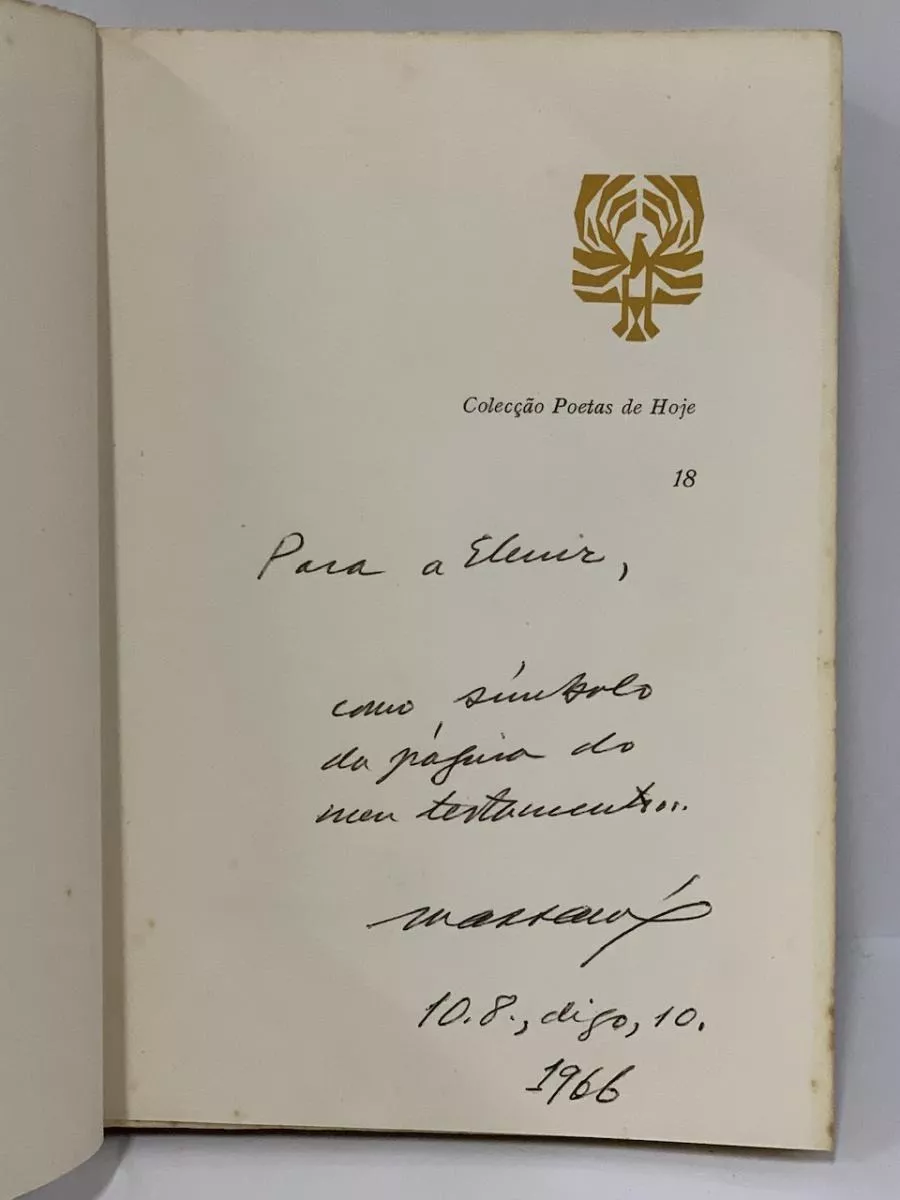 Colecção Poetas de Hoje
18
Para a Elenir,
como símbolo
da página do
meu testamento...
10.8., digo, 10.
1966